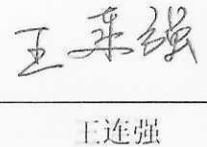 王连强
王连强